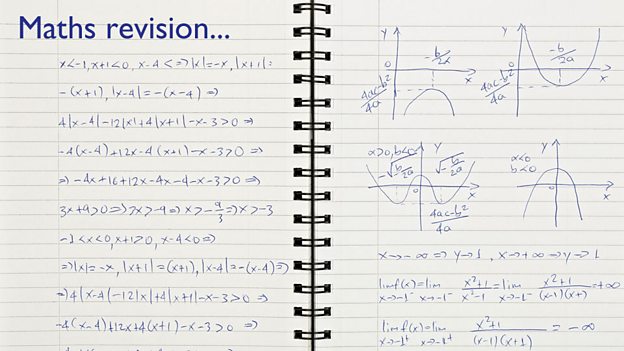 Maths revision...
x<-1, x+1<0, x-4<⇒|x|=-x, |x+1|:
-(x+1), |x-4|=-(x-4)⇒
4|x-4|-12|x|+4|x+1|-x-3>0⇒
-4(x-4)+12x-4(x+1)-x-3>0⇒
⇒-4x+16+12x-4x-4-x-3>0⇒
3x+9>0⇒3x>-9⇒x>-9/3⇒x>-3
-1<x<0, x+1>0, x-4<0⇒
⇒|x|=-x, |x+1|=(x+1), |x-4|=-(x-4)⇒
⇒4|x-4|-12|x|+4|x+1|-x-3>0⇒
-4(x-4)+12x+4(x+1)-x-3>0⇒
y
-b/2a
0
x
4ac-b²/4a
y
-b/2a
0
x
4ac-b²/4a
a>0, b<0
y
-√-b/2a
√-b/2a
x
4ac-b²/4a
a<0
b<0
y
x
x→-∞⇒y→1, x→+∞⇒y→1
limf(x)=lim x²+1/x²-1=lim x²+1/(x-1)(x+)=+∞
x→-1⁻ x→-1⁻ x→-1⁻
limf(x)=lim x²+1/(x-1)(x+1)=-∞
x→-1⁺ x→-1⁺